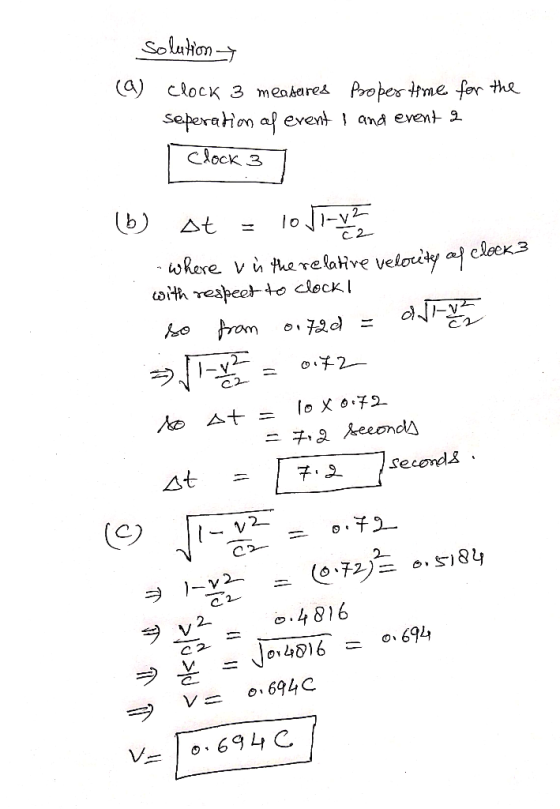 Solution →
(a) Clock 3 measures Proper time for the
seperation of event 1 and event 2
Clock 3
(b) Δt = 10 √(1-v²/c²)
- where v is the relative velocity of clock 3
with respect to clock 1
so from 0.72d = d√(1-v²/c²)
⇒ √(1-v²/c²) = 0.72
so Δt = 10 X 0.72
= 7.2 seconds
Δt = 7.2 seconds.
(C) √(1-v²/c²) = 0.72
⇒ 1-v²/c² = (0.72)² = 0.5184
⇒ v²/c² = 0.4816
⇒ v/c = √0.4816 = 0.694
⇒ V = 0.694C
V= 0.694 C